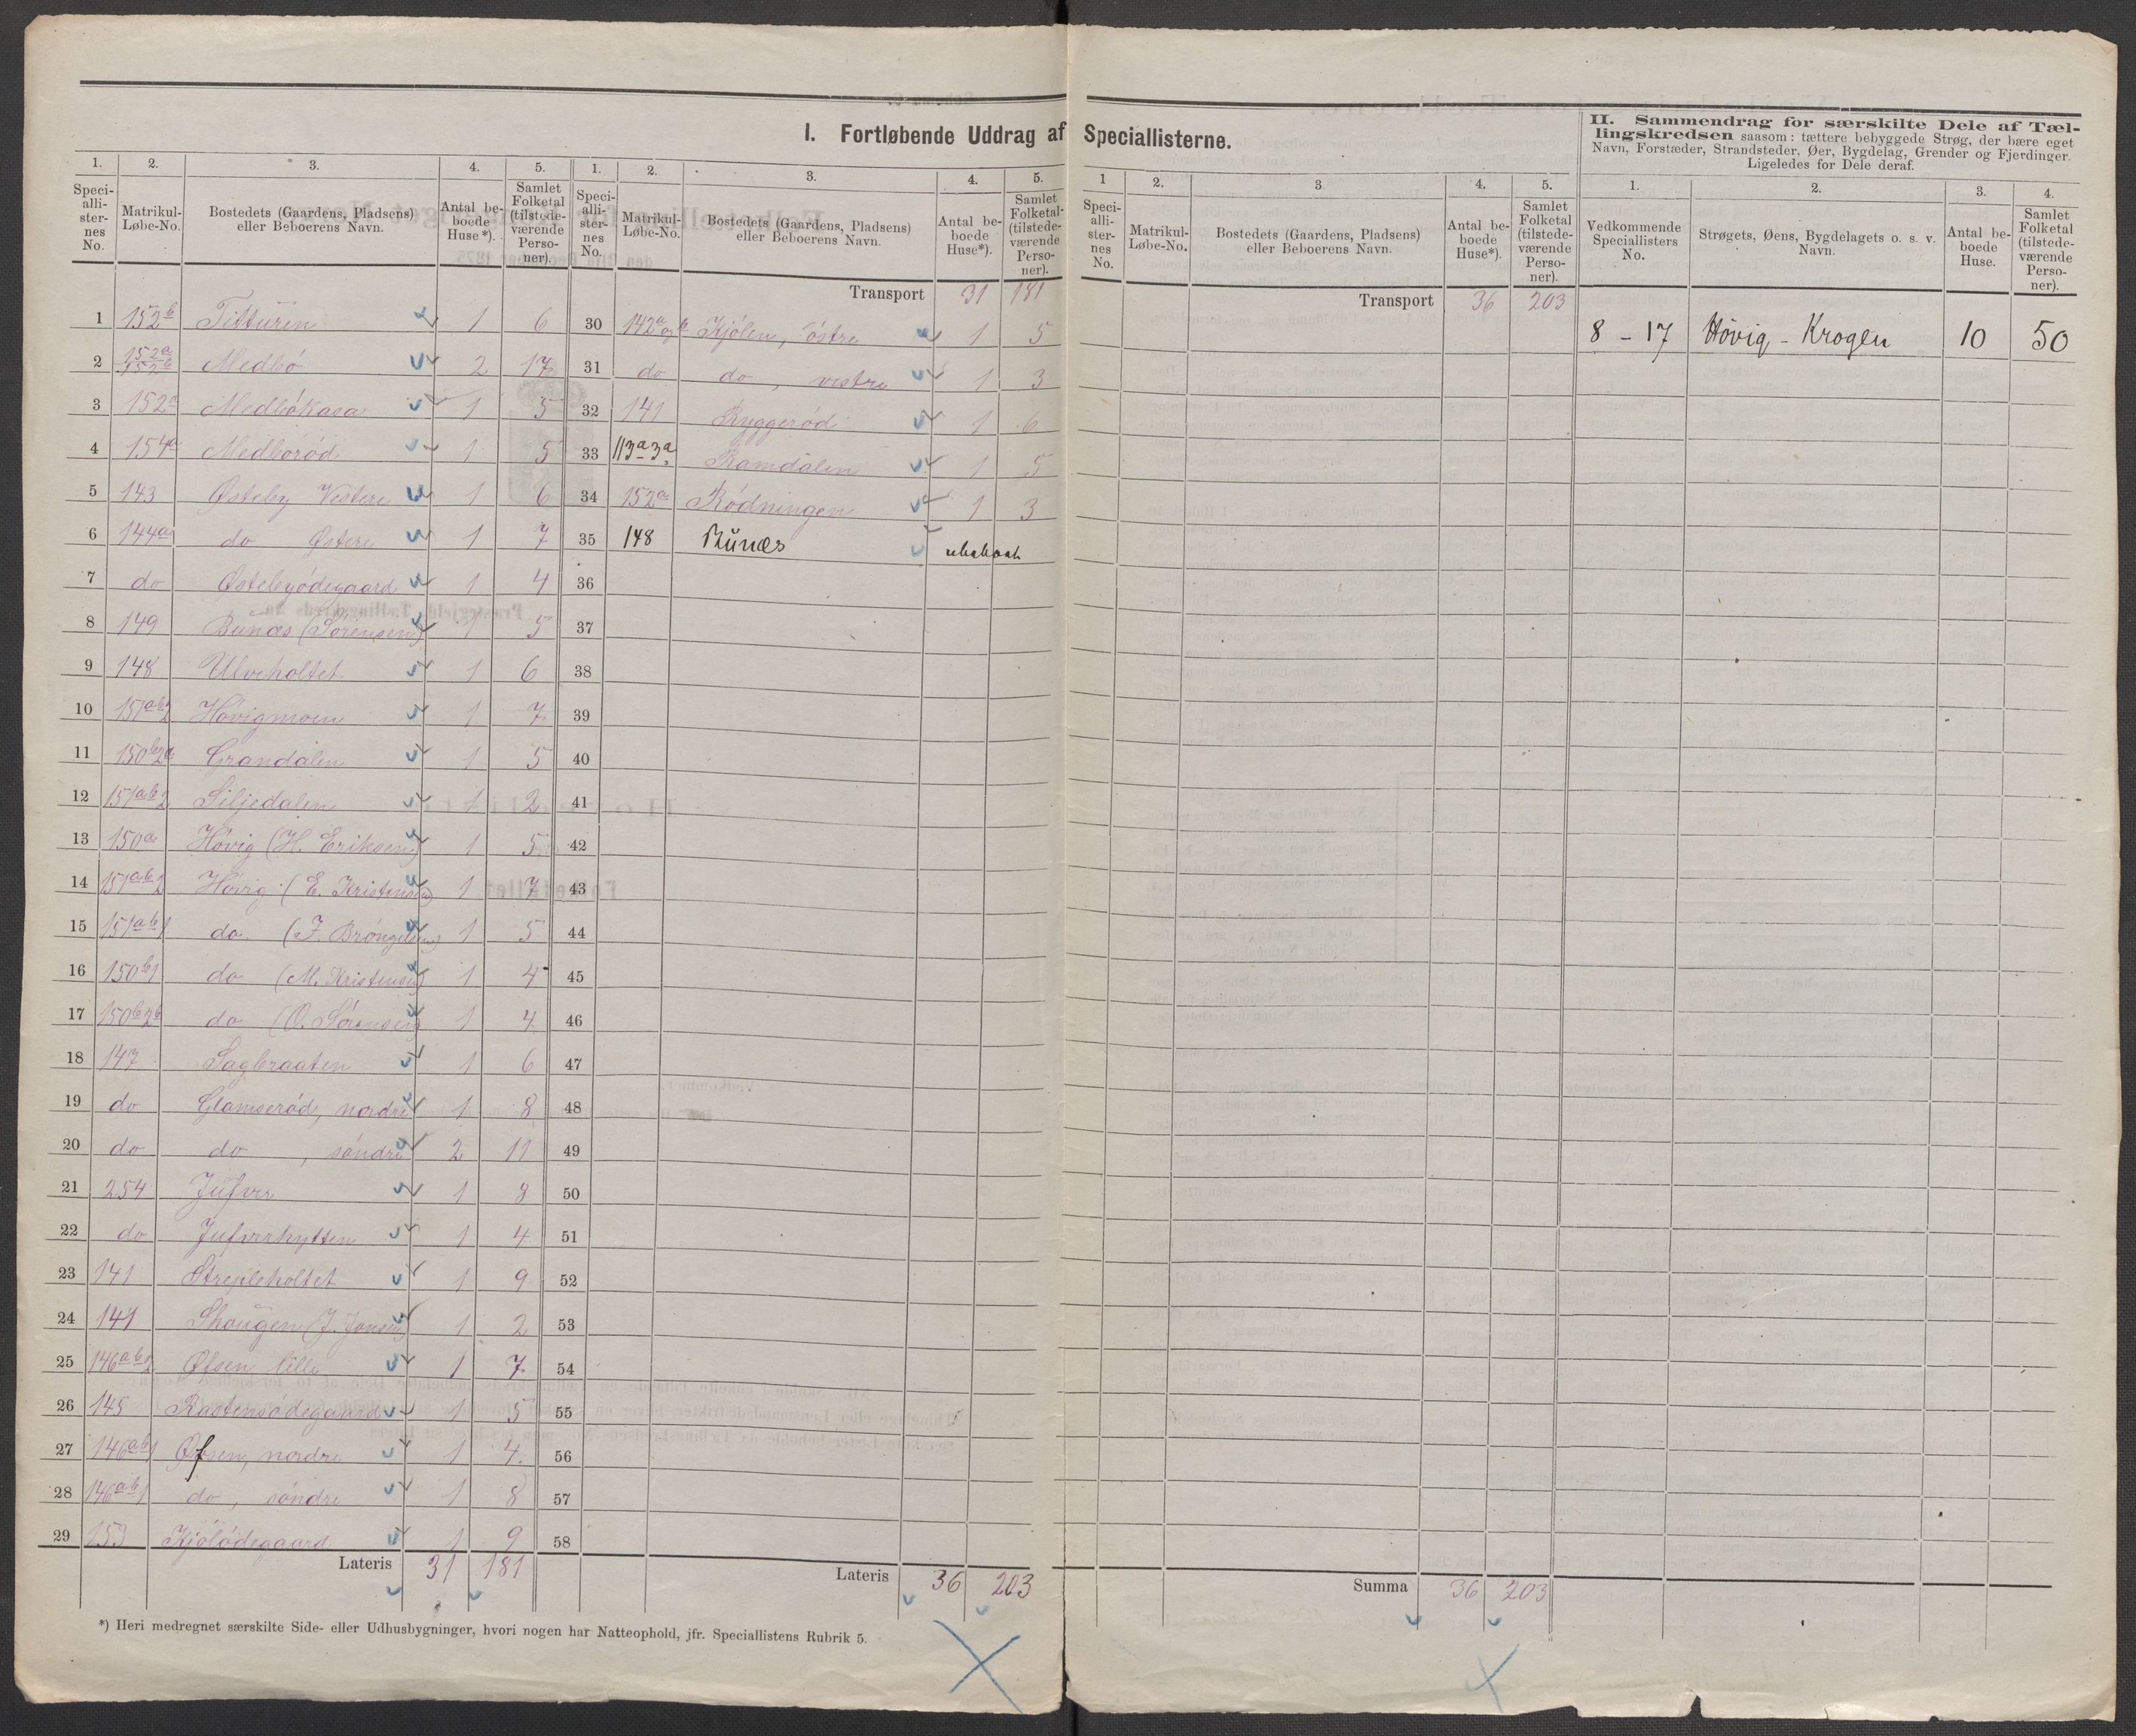 I. Fortløbende Uddrag af Speciallisterne.
1. 2. 3. 4. 5.
Speciallisternes No. Matrikul-Løbe-No. Bostedets (Gaardens, Pladsens) eller Beboerens Navn. Antal beboede Huse*). Samlet Folketal (tilstedeværende Personer).
1 152b Titturen 1 6
2 152a 152b Medbö 2 17
3 152a Medbökasa 1 5
4 154a Medböröd 1 5
5 143 Østeby Vestere 1 6
6 144a do Østere 1 7
7 do Østebyödegaard 1 4
8 149 Bunæs (Sörensen) 1 5
9 148 Ulveholtet 1 6
10 151ab2 Hövigmoen 1 7
11 150b2a Grandalen 1 5
12 151ab2 Siljedalen 1 2
13 150a Hövig (H. Eriksen) 1 5
14 151ab2 Hövig (E. Kristensen) 1 7
15 151ab1 do (J. Bröngelsen) 1 5
16 150b1 do (M. Kristensen) 1 4
17 150b2b do (O. Sörensen) 1 4
18 147 Sagbraaten 1 6
19 do Glamseröd, nordre 1 8
20 do do, söndre 2 11
21 254 Jufver 1 8
22 do Jufverhytten 1 4
23 141 Strepleholtet 1 9
24 141 Skougen (J. Jonsen) 1 2
25 146ab2 Øfsen lille 1 7
26 145 Rastensödegaard 1 5
27 146ab1 Øfsen, nordre 1 4.
28 146ab1 do, söndre 1 8
29 153 Kjölödegaard 1 9
Lateris 31 181
*) Heri medregnet særskilte Side- eller Udhusbygninger, hvori nogen har Natteophold, jfr. Speciallistens Rubrik 5.
1. 2. 3. 4. 5.
Speciallisternes No. Matrikul-Løbe-No. Bostedets (Gaardens, Pladsens) eller Beboerens Navn. Antal beboede Huse*). Samlet Folketal (tilstedeværende Personer).
Transport 31 181
30 142a og b Kjölen, östre 1 5
31 do do, vestre 1 3
32 141 Ryggeröd 1 6
33 113a3a Ramdalen 1 5
34 152a Rödningen 1 3
35 148 Bunæs ubeboet
36
37
38
39
40
41
42
43
44
45
46
47
48
49
50
51
52
53
54
55
56
57
58
Lateris 36 203
1 2. 3 4. 5.
Speciallisternes No. Matrikul-Løbe-No. Bostedets (Gaardens, Pladsens) eller Beboerens Navn. Antal beboede Huse*). Samlet Folketal (tilstedeværende Personer).
Transport 36 203
Summa 36 203
II. Sammendrag for særskilte Dele af Tæl-
lingskredsen saasom: tættere bebyggede Strøg, der bære eget
Navn, Forstæder, Strandsteder, Øer, Bygdelag, Grender og Fjerdinger.
Ligeledes for Dele deraf.
1. 2. 3. 4.
Vedkommende Speciallisters No. Strøgets, Øens, Bygdelagets o. s. v. Navn. Antal beboede Huse. Samlet Folketal (tilstedeværende Personer).
8 - 17 Hövig - Krogen 10 50